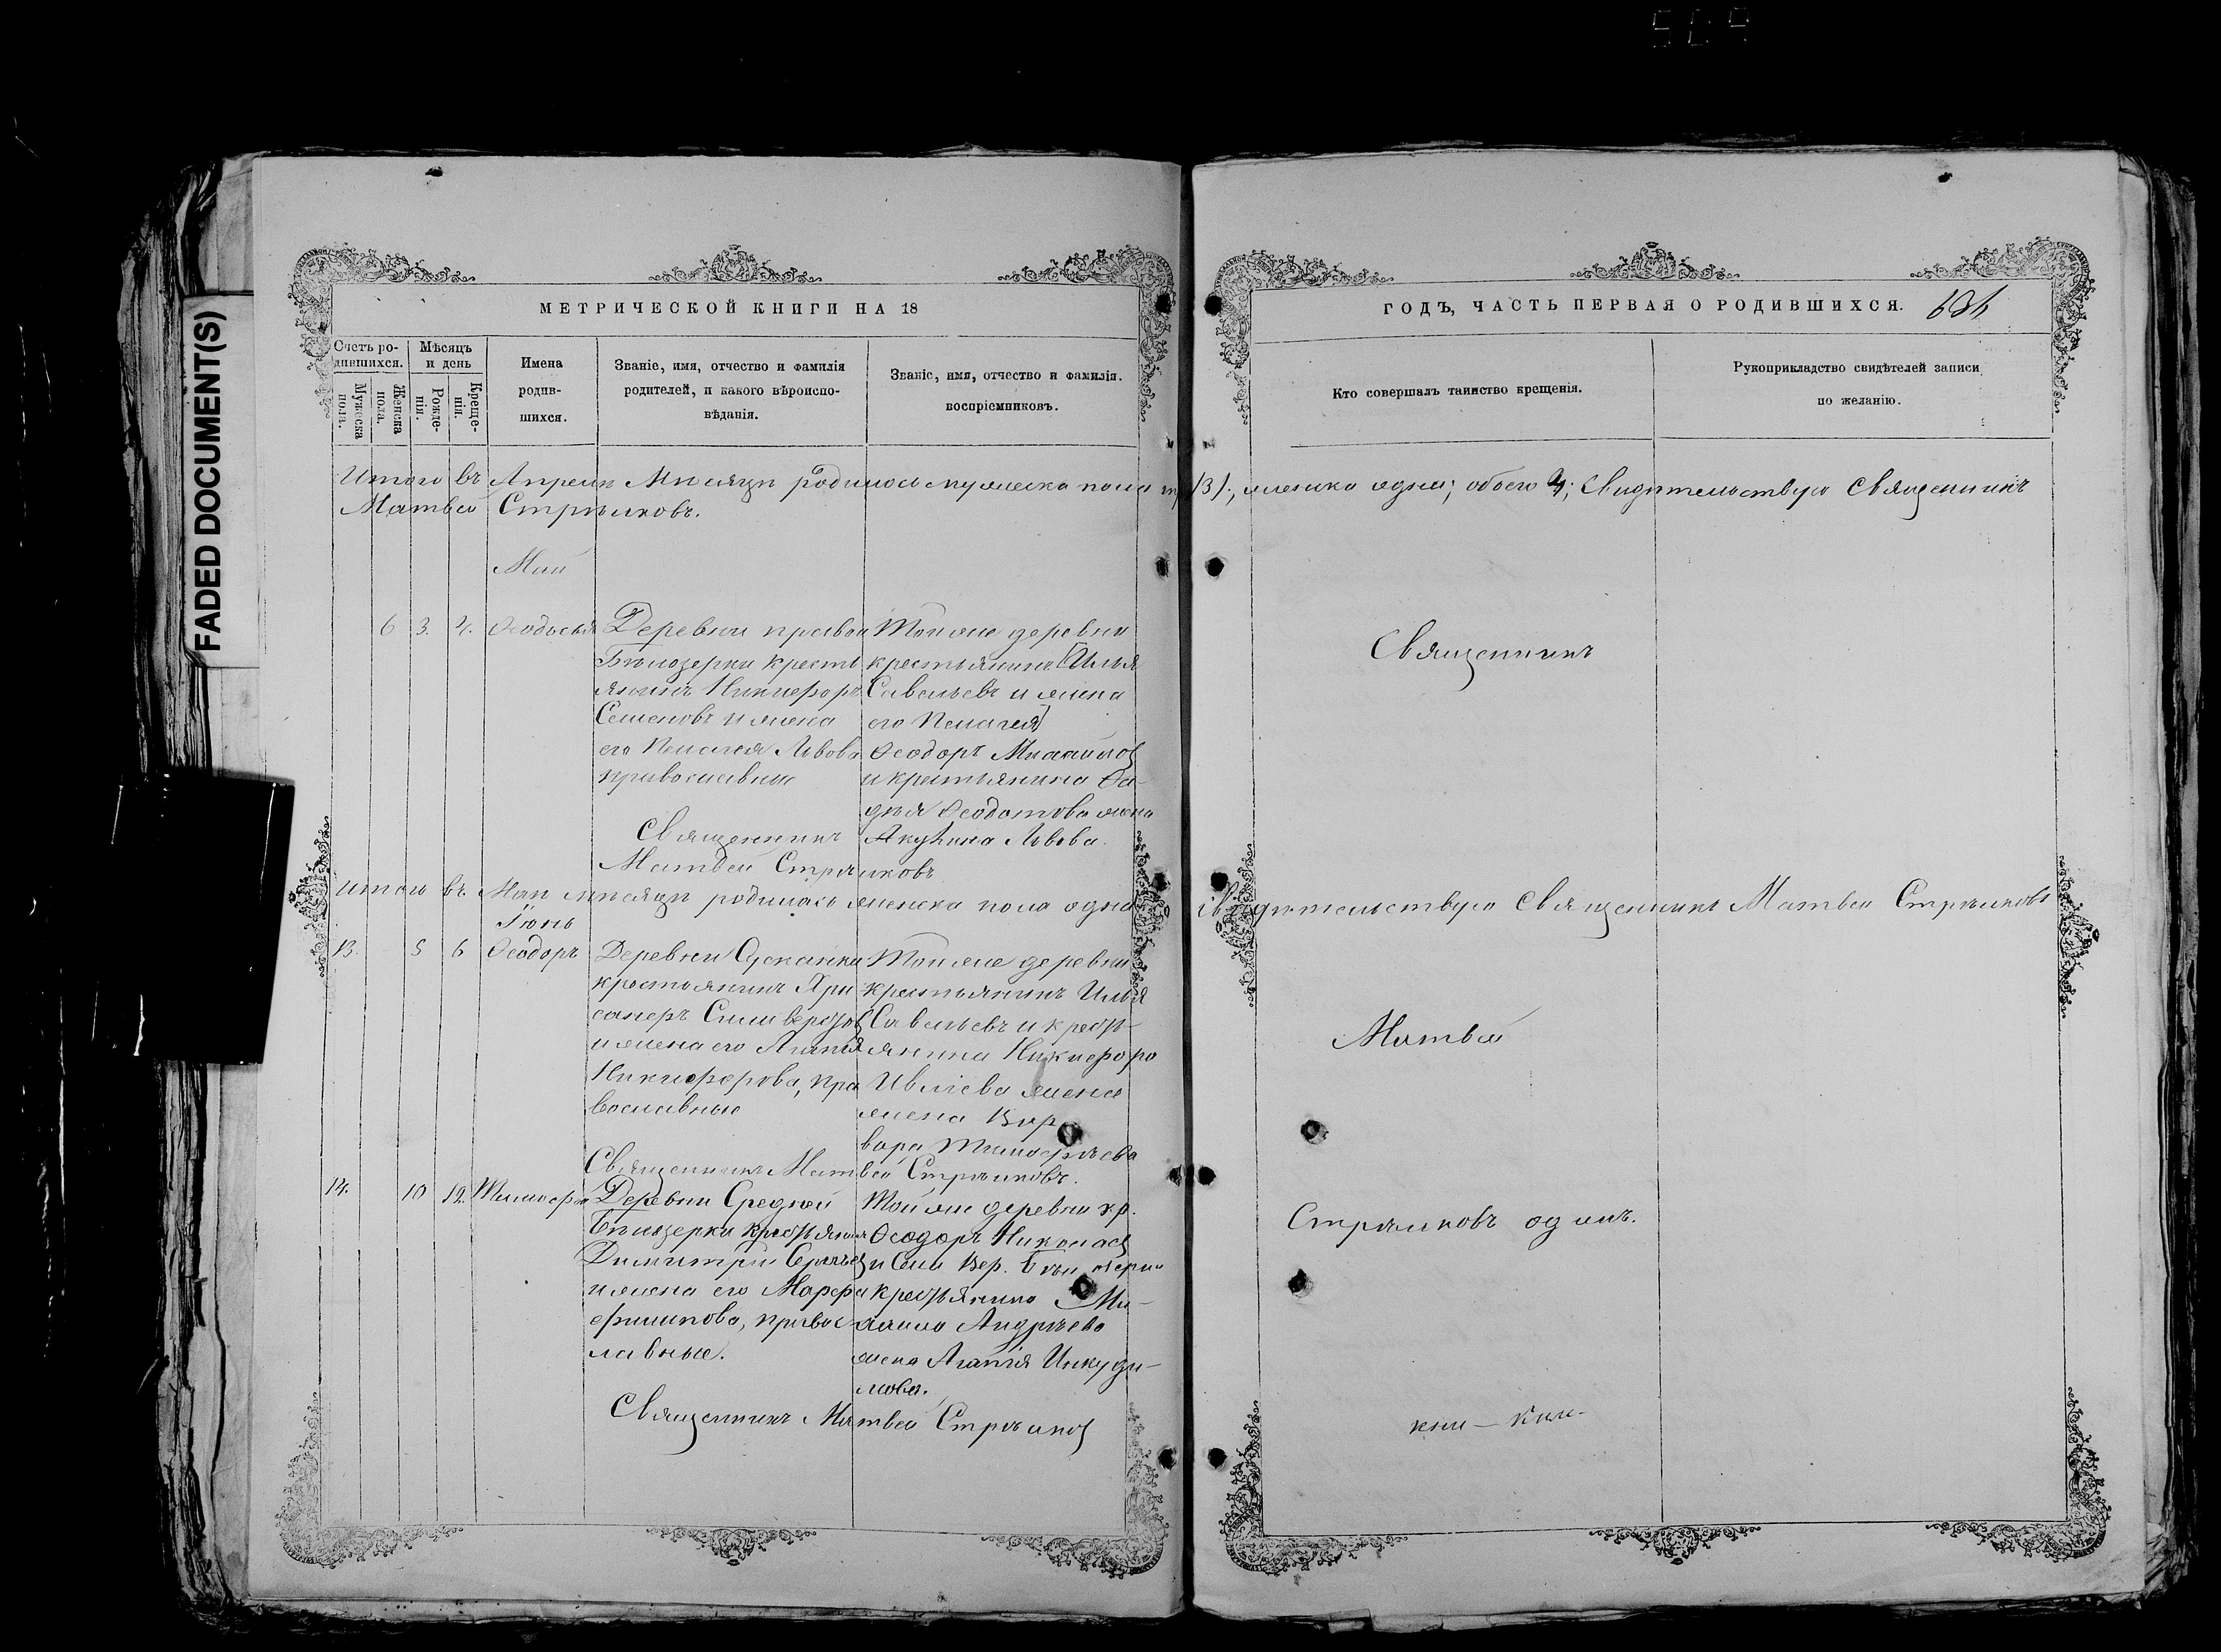 509
FADED DOCUMENT(S)
МЕТРИЧЕСКОЙ КНИГИ НА 18
ГОДЪ, ЧАСТЬ ПЕРВАЯ О РОДИВШИХСЯ.
Счетъ ро-
дившихся.
Мужеска
пола.
Женска
пола.
Мѣсяцъ
и день
Рожде-
нія.
Креще-
нія.
Имена
родив-
шихся.
Званіе, имя, отчество и фамилія
родителей, и какого вѣроиспо-
вѣданія.
Званіе, имя, отчество и фамилія.
воспріемниковъ.
Кто совершалъ таинство крещенія.
Рукоприкладство свидѣтелей записи
по желанію.
Итого въ Апрелѣ Мѣсяцѣ родилось мужеска пола (3), женска одна; обоего 4; Свидѣтельствую Священникъ
Матвей Стрѣлковъ.
Май
6 3. 4. Ѳеодосія
Деревни
Бѣлозерки кресть
янинъ Никифоръ
Семеновъ и жена
его Пелагея Львова
православные
Священникъ
Матвей Стрѣлковъ
Той же деревни
крестьянинъ [Илья
Савельевъ и жена
его Пелагея]
Ѳеодоръ Михайлов
и крестьянина Ѳа-
дѣя Ѳеодотова жена
Акулина Львова.
Священникъ
Итого въ Маѣ мѣсяцѣ родилась женска пола одна Свидѣтельствую Священникъ Матвей Стрѣлковъ
Іюнь
13. 5 6 Ѳеодоръ
Деревни
крестьянинъ Хри
санеръ Сильверстов
и жена его Агапія
Никифорова, пра
вославные
Священникъ Матвей Стрѣлковъ.
Той же деревни
крестьянинъ Илья
Савельевъ и кресть-
янина Никифора
Ивлiева жена
жена Вар
вара Тимофѣева
Матвей
14. 10 12. Тимофей
Деревни Средней
Бѣлозерки крестьянинъ
Димитрій Сергѣев
и жена его Марфа
Филипова, правос
лавные.
Священникъ Матвей Стрѣлков
Той же деревни кр.
Ѳеодоръ Николаев
и Вер. Бѣлозерки
крестьянина Ми-
хаила Андрѣева
жена Агапія Инкуди-
нова.
Стрѣлковъ одинъ.